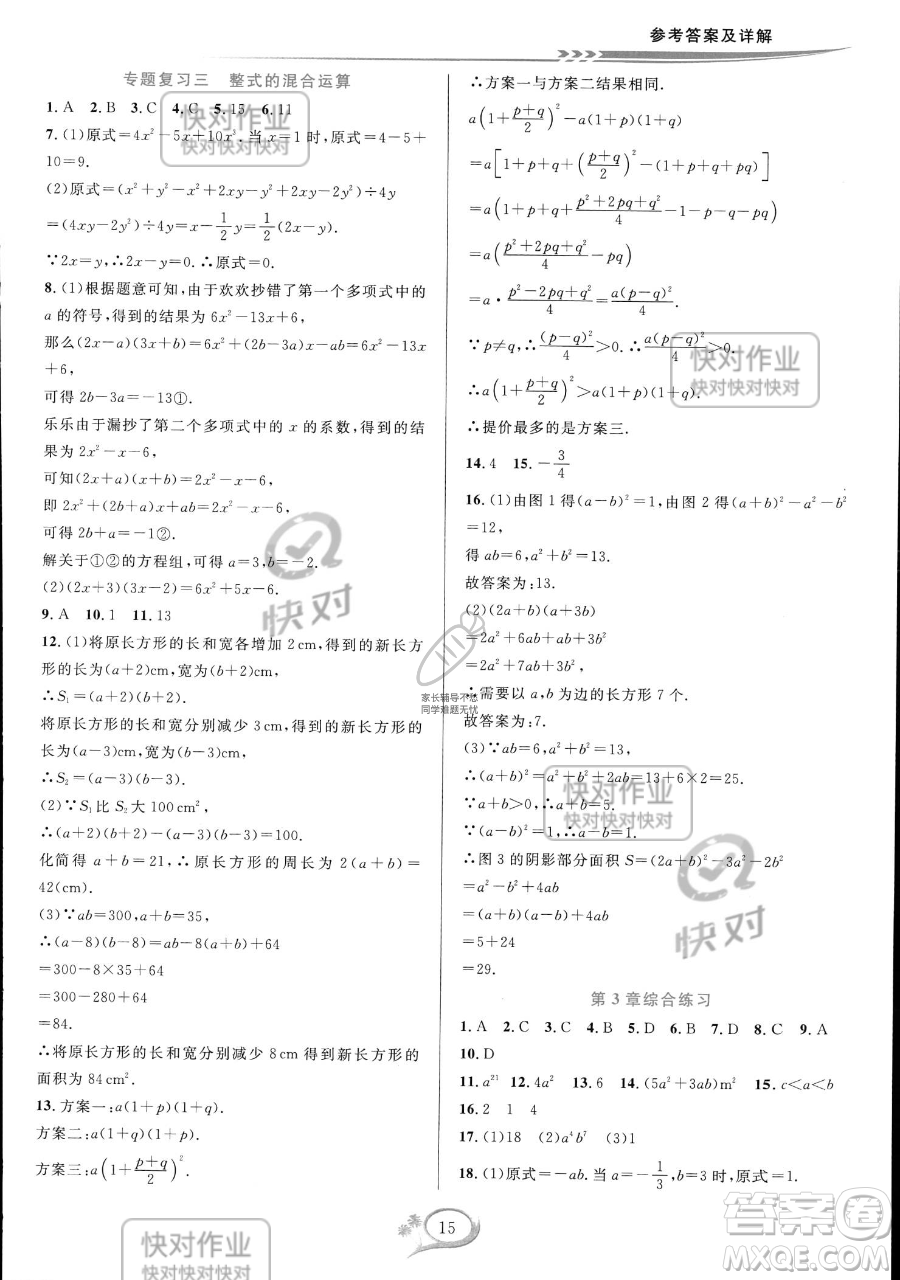 参考答案及详解
专题复习三 整式的混合运算
1. A 2. B 3. C 4. C 5. 15 6. 11
7. (1)原式=4x²-5x+10x³. 当 x=1 时,原式=4-5+
10=9.
(2)原式=(x²+y²-x²+2xy-y²+2xy-2y²)÷4y
=(4xy-2y²)÷4y=x-1/2y=1/2(2x-y).
∵2x=y,∴2x-y=0.∴原式=0.
8. (1)根据题意可知,由于欢欢抄错了第一个多项式中的
a 的符号,得到的结果为 6x²-13x+6,
那么(2x-a)(3x+b)=6x²+(2b-3a)x-ab=6x²-13x
+6,
可得 2b-3a=-13①.
乐乐由于漏抄了第二个多项式中的 x 的系数,得到的结
果为 2x²-x-6,
可知(2x+a)(x+b)=2x²-x-6,
即 2x²+(2b+a)x+ab=2x²-x-6,
可得 2b+a=-1②.
解关于①②的方程组,可得 a=3,b=-2.
(2)(2x+3)(3x-2)=6x²+5x-6.
9. A 10. 1 11. 13
12. (1)将原长方形的长和宽各增加 2 cm,得到的新长方
形的长为(a+2)cm,宽为(b+2)cm,
∴S₁=(a+2)(b+2).
将原长方形的长和宽分别减少 3 cm,得到的新长方形的
长为(a-3)cm,宽为(b-3)cm,
∴S₂=(a-3)(b-3).
(2)∵S₁ 比 S₂ 大 100 cm²,
∴(a+2)(b+2)-(a-3)(b-3)=100.
化简得 a+b=21,∴原长方形的周长为 2(a+b)=
42(cm).
(3)∵ab=300,a+b=35,
∴(a-8)(b-8)=ab-8(a+b)+64
=300-8×35+64
=300-280+64
=84.
∴将原长方形的长和宽分别减少 8 cm,得到新长方形的
面积为 84 cm².
13. 方案一:a(1+p)(1+q).
方案二:a(1+q)(1+p).
方案三:a(1+(p+q)/2)².
∴方案一与方案二结果相同.
a(1+(p+q)/2)²-a(1+p)(1+q)
=a[1+p+q+((p+q)/2)²-(1+p+q+pq)]
=a(1+p+q+(p²+2pq+q²)/4-1-p-q-pq)
=a((p²+2pq+q²)/4-pq)
=a·(p²-2pq+q²)/4=a(p-q)²/4.
∵p≠q,∴(p-q)²/4>0.∴a(p-q)²/4>0.
∴a(1+(p+q)/2)²>a(1+p)(1+q).
∴提价最多的是方案三.
14. 4 15. -3/4
16. (1)由图 1 得(a-b)²=1,由图 2 得(a+b)²-a²-b²
=12,
得 ab=6,a²+b²=13.
故答案为:13.
(2)(2a+b)(a+3b)
=2a²+6ab+ab+3b²
=2a²+7ab+3b²,
∴需要以 a,b 为边的长方形 7 个.
故答案为:7.
(3)∵ab=6,a²+b²=13,
∴(a+b)²=a²+b²+2ab=13+6×2=25.
∵a+b>0,∴a+b=5.
∵(a-b)²=1,∴a-b=1.
∴图 3 的阴影部分面积 S=(2a+b)²-3a²-2b²
=a²-b²+4ab
=(a+b)(a-b)+4ab
=5+24
=29.
第 3 章综合练习
1. A 2. C 3. C 4. B 5. D 6. B 7. D 8. C 9. A
10. D
11. a²¹ 12. 4a² 13. 6 14. (5a²+3ab)m² 15. c<a<b
16. 2 1 4
17. (1)18 (2)a⁴b⁷ (3)1
18. (1)原式=-ab. 当 a=-1/3,b=3 时,原式=1.
15
快对作业
快对快对快对
快对作业
快对快对快对
快对
家长辅导不愁
同学难题无忧
快对作业
快对快对快对
快对
快对作业
快对快对快对
答案圈
MXQE.COM